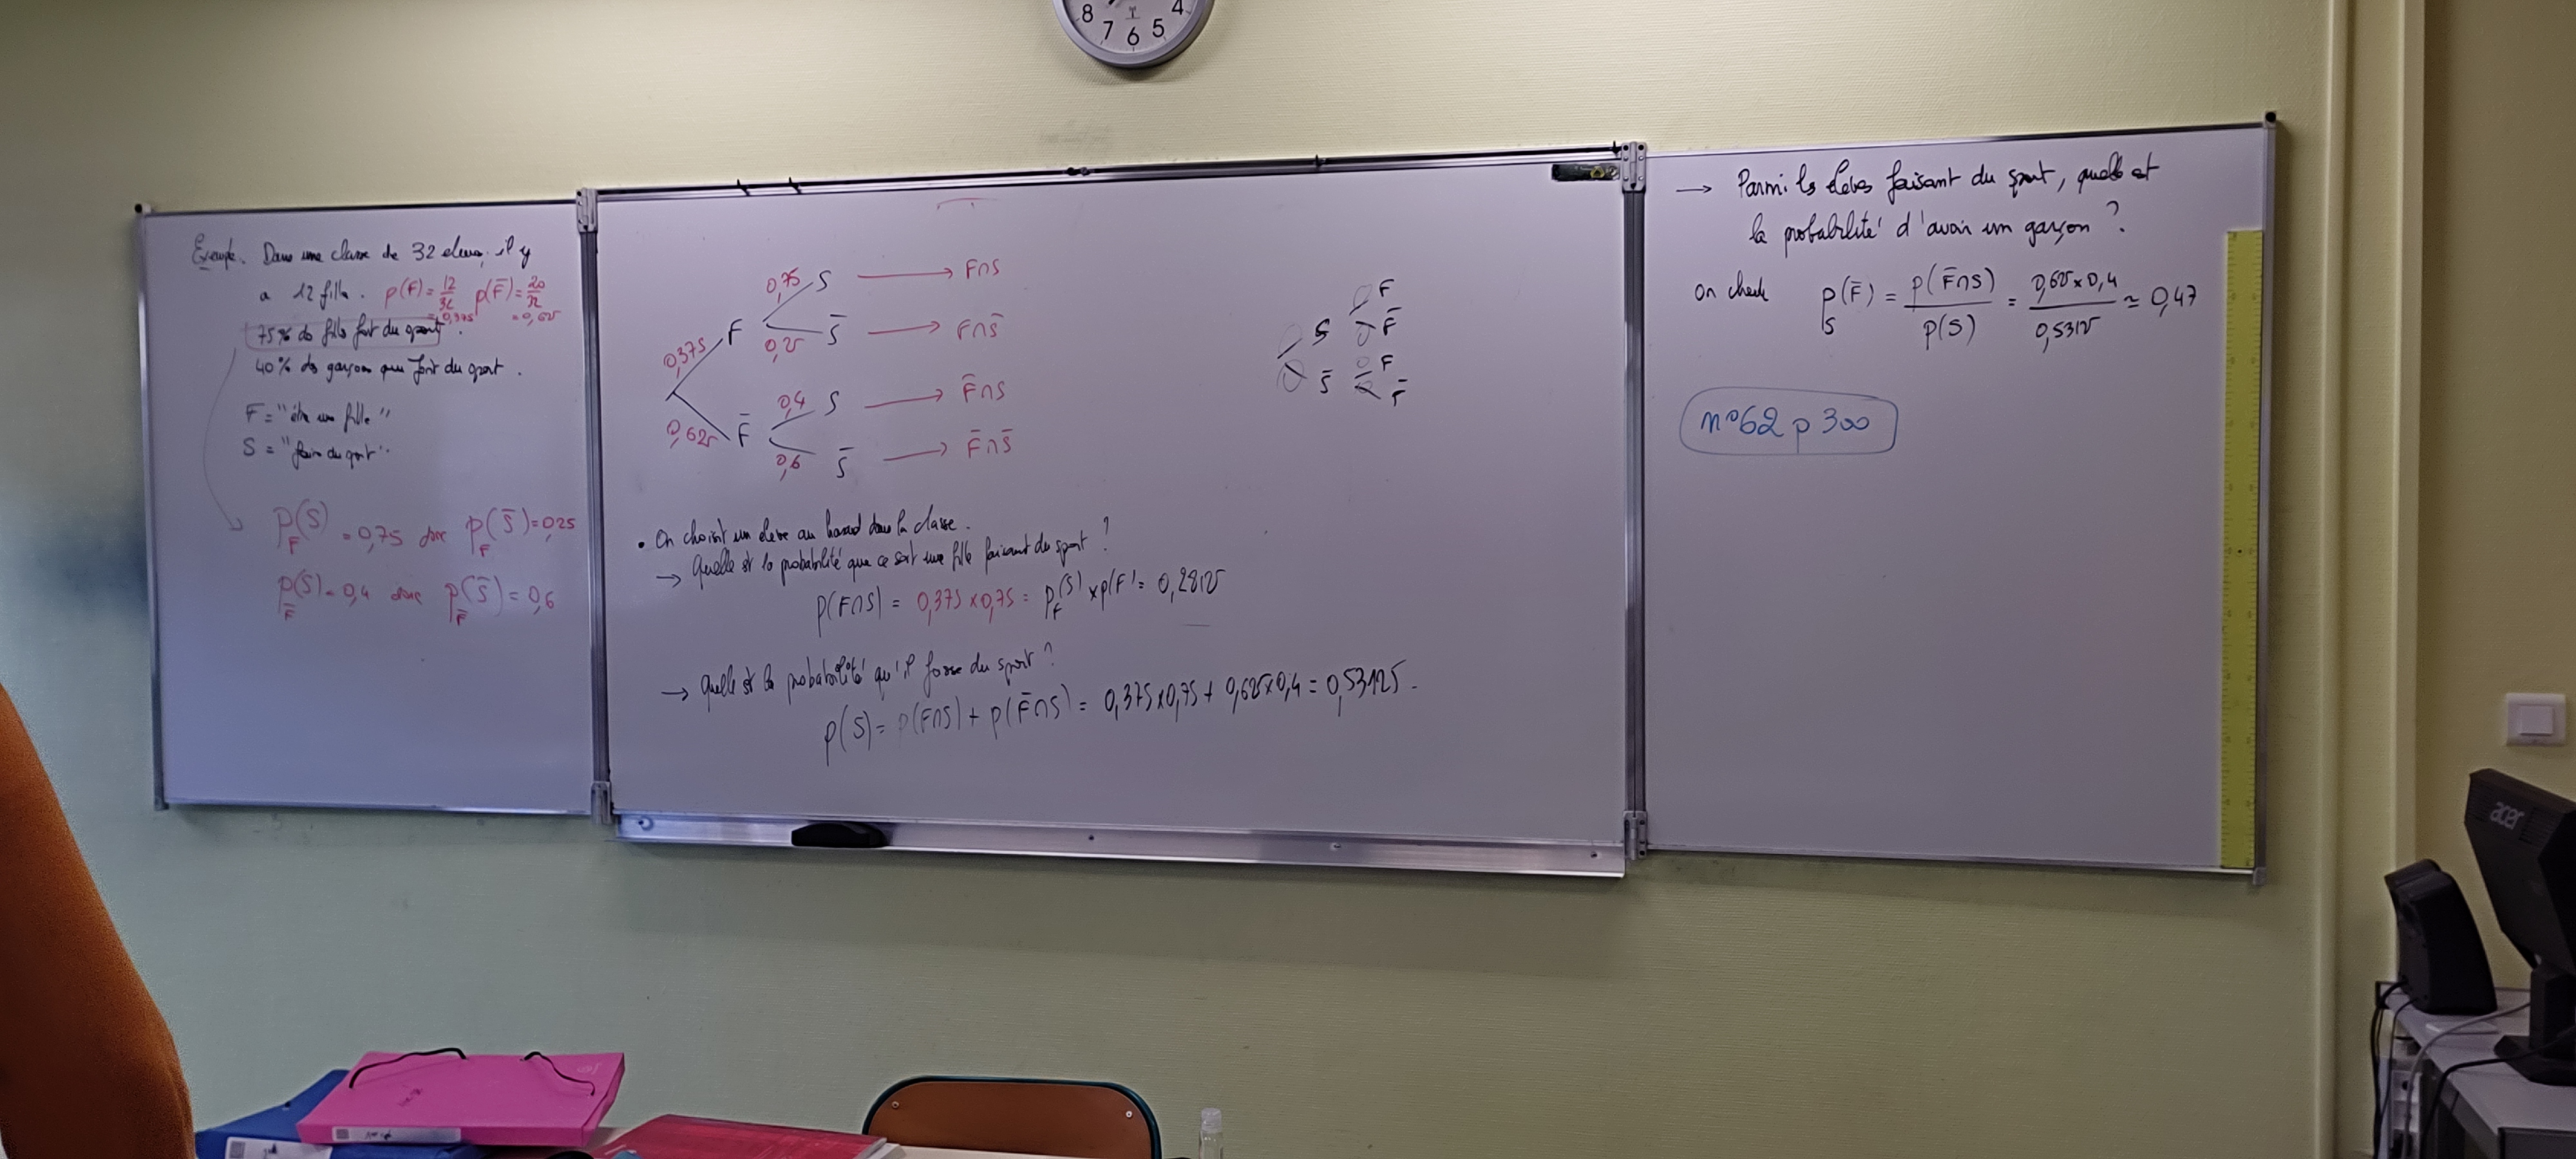 8 7 6 5 4
Exemple. Dans une classe de 32 eleves, il y
a 12 filles. p(F) = 12/32 = 0,375 p(F̄) = 20/32 = 0,625
75% des filles font du sport.
40% des garçons font du sport.
F = "être une fille"
S = "faire du sport".
P_F(S) = 0,75 donc p_F(S̄) = 0,25
p_F̄(S) = 0,4 donc p_F̄(S̄) = 0,6
0,75 S → F∩S
0,375 F
0,25 S̄ → F∩S̄
0,4 S → F̄∩S
0,625 F̄
0,6 S̄ → F̄∩S̄
F
S F̄
S̄ F
F̄
• On choisit un eleve au hasard dans la classe.
→ Quelle est la probabilité que ce soit une fille faisant du sport ?
p(F∩S) = 0,375 × 0,75 = p_F(S) × p(F) = 0,28125
→ Quelle est la probabilité qu'il fasse du sport ?
p(S) = p(F∩S) + p(F̄∩S) = 0,375 × 0,75 + 0,625 × 0,4 = 0,53125.
→ Parmi les élèves faisant du sport, quelle est
la probabilité d'avoir un garçon ?
on cherche P_S(F̄) = p(F̄∩S)/p(S) = 0,625 × 0,4/0,53125 ≃ 0,47
n°62 p 300
acer